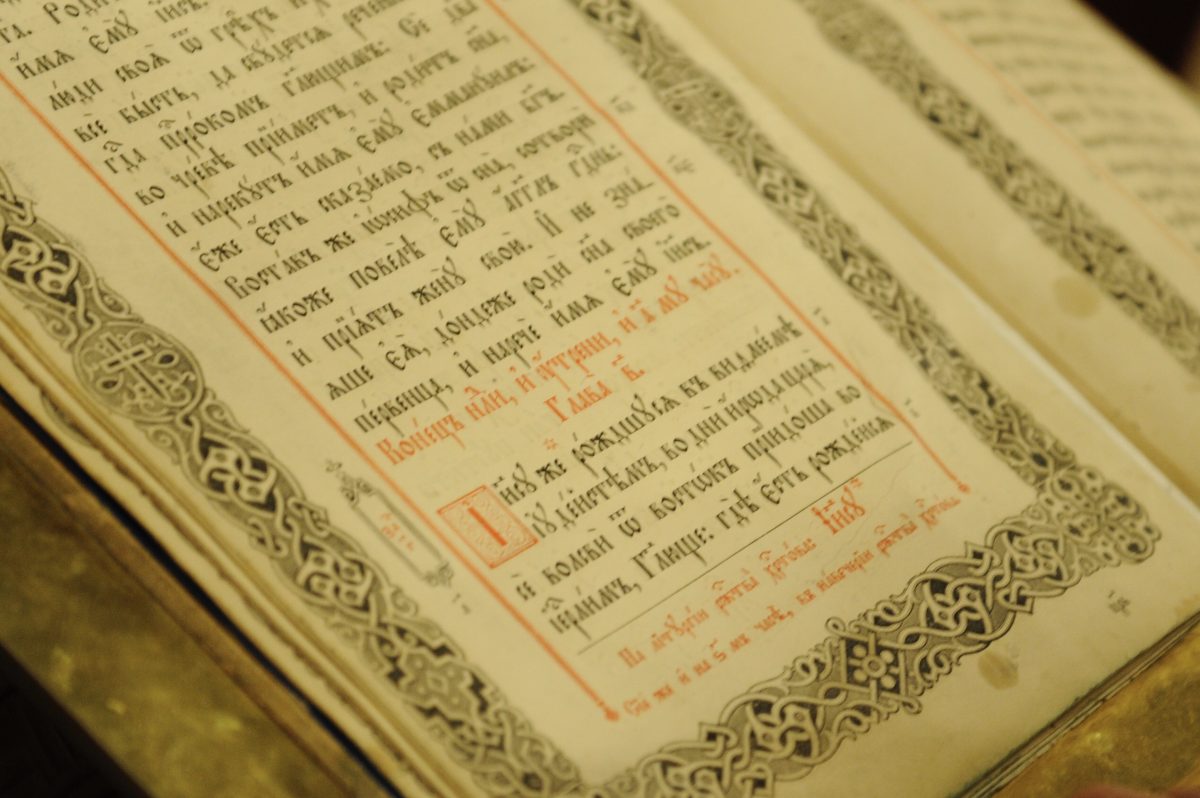 и҆́мѧ є҆мꙋ̀ і҆и҃съ.
лю́ди своѧ̑ ѿ грѣ̑хъ
всѐ бы́сть, да сбꙋ́детсѧ рече́нное
гдⷭ҇а прⷪ҇ро́комъ гл҃ющимъ: Сѐ дв҃а
во чре́вѣ прїи́метъ, и҆ роди́тъ сн҃а,
и҆ нарекꙋ́тъ и҆́мѧ є҆мꙋ̀ є҆мманꙋ́илъ:
є҆́же є҆́сть сказа́емо, съ на́ми бг҃ъ.
Воста́въ же і҆ѡ́сифъ ѿ сна̀, сотворѝ
ꙗ҆́коже повелѣ̀ є҆мꙋ̀ а҆́гг҃лъ гдⷭ҇нь:
и҆ прїѧ́тъ женꙋ̀ свою̀. И҆ не зна́-
ѧше є҆ѧ̀, до́ндеже родѝ сн҃а своего̀
пе́рвенца, и҆ наречѐ и҆́мѧ є҆мꙋ̀ і҆и҃съ.
Коне́цъ недⷧ҇и, и҆ ᲂу҆́трени, и҆ а҃-мꙋ часꙋ̀.
Глава̀ в҃.
І҆и҃сꙋ же ро́ждшꙋсѧ въ виѳлее́мѣ
і҆ꙋде́йстѣмъ, во дни̑ и҆́рѡда царѧ̀,
сѐ волсвѝ ѿ востѡ́къ прїидо́ша во
і҆ерⷭ҇ли́мъ, гл҃юще: гдѣ̀ є҆́сть рожде́йсѧ
На літꙋргі́и ржⷭ҇тва̀ хрⷭ҇то́ва: І҆и҃сꙋ
Сїѐ же и҆ на ѕ҃-мъ часѣ̀, въ наве́черїи ржⷭ҇тва̀ хрⷭ҇то́ва.